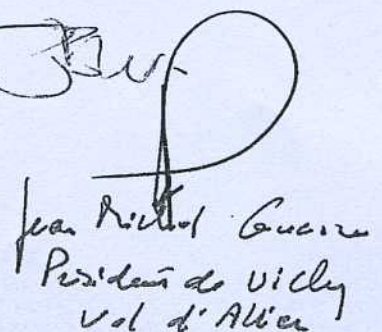 Jean Michel Guerre
Président de Vichy
Val d'Allier